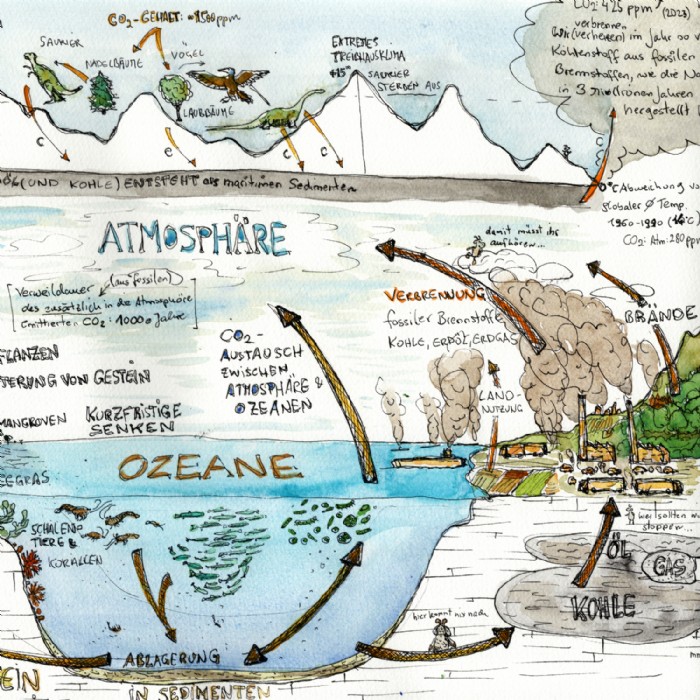 CO₂-GEHALT: ≈1500ppm
SAURIER
NADELBÄUME
VÖGEL
LAUBBÄUME
EXTREMES
TREIBHAUSKLIMA
+15°
SAURIER
STERBEN AUS
CO₂ 425 ppm (2023)
verbrennen
Wir (verheizen) im Jahr so v
Kohlenstoff aus fossilen
Brennstoffen, wie die N
in 3 Millionen Jahren
hergestellt
C
C
C
C
ÖL (UND KOHLE) ENTSTEHT aus maritimen Sedimenten
0°C Abweichung vo
globaler Ø Temp.
1960-1990 (14°C)
CO₂: Atm: 280ppm
ATMOSPHÄRE
damit müsst ihr
aufhören...
(aus fossilen)
Verweildauer
des zusätzlich in die Atmosphäre
emittierten CO₂: 1000e Jahre
VERBRENNUNG
fossiler Brennstoffe
KOHLE, ERDÖL, ERDGAS
BRÄNDE
CO₂-
AUSTAUSCH
ZWISCHEN
ATMOSPHÄRE &
OZEANEN
FLANZEN
TERUNG VON GESTEIN
MANGROVEN
KURZFRISTIGE
SENKEN
LAND-
NUTZUNG
OZEANE
EEGRAS
SCHALEN-
TIERE &
KORALLEN
stoppen...
ÖL
GAS
KOHLE
hier kommt nix nach
ABLAGERUNG
IN SEDIMENTEN
EIN